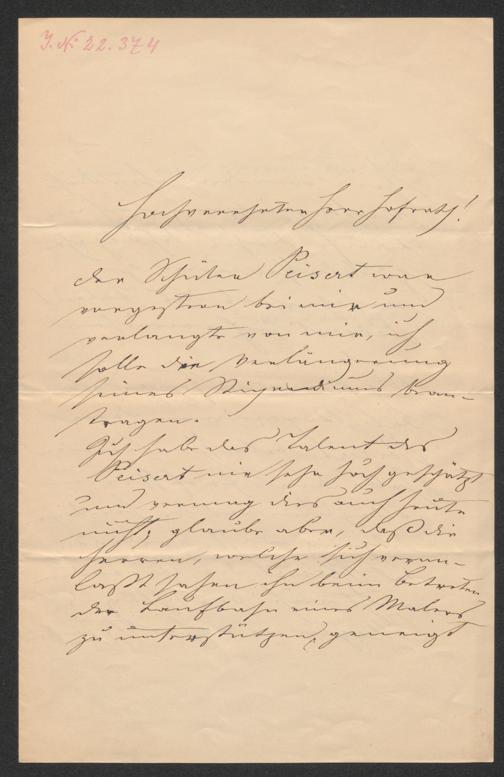 J. N. 22.374
Hochverehrter Herr Hofrath!
der Schüler Peisert war
vorgestern bei mir und
verlangte von mir, ich
solle die Verlängerung
seines Stipendiums bean-
tragen.
Ich habe das Talent des
Peisert nie sehr hoch geschätzt
und vermag dies auch heute
nicht, glaube aber, daß die
Herren, welche sich veran-
laßt sahen ihn beim Betreten
der Laufbahn eines Malers
zu unterstützen, geneigt